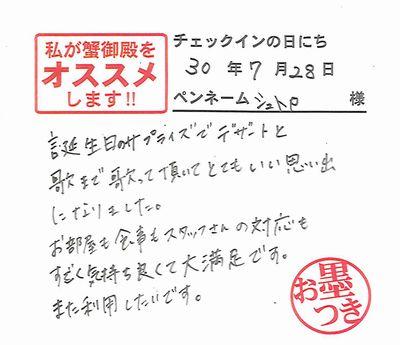 私が蟹御殿を
オススメ
します!!
チェックインの日にち
30 年 7 月 28 日
ペンネーム シュトロ 様
誕生日のサプライズでデザートと
歌まで歌って頂いてとてもいい思い出
になりました。
お部屋も食事もスタッフさんの対応も
すごく気持ち良くて大満足です。
また利用したいです。
お墨つき